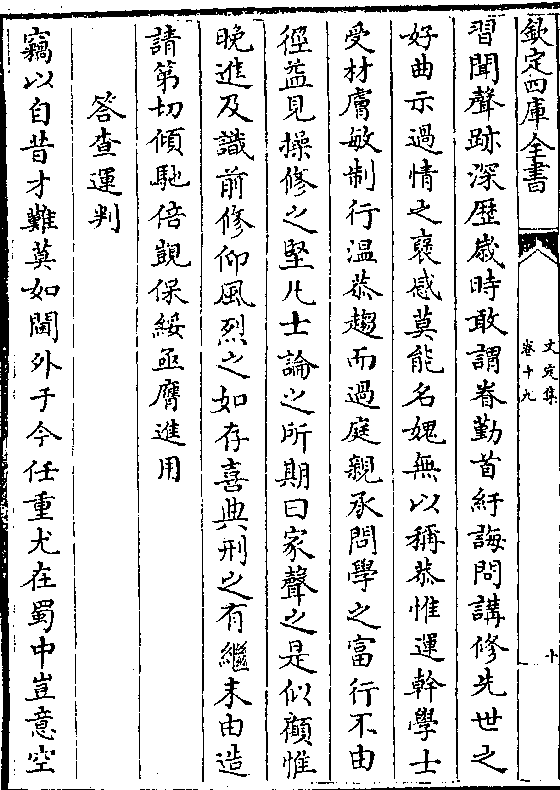 欽定四庫全書
文定集
卷十九
十
習聞聲跡深歴歲時敢謂眷勤首紆誨問講修先世之
好曲示過情之襃感莫能名媿無以稱恭惟運幹學士
受材膚敏制行温恭趨而過庭親承問學之富行不由
徑益見操修之堅凡士論之所期曰家聲之是似顧惟
晚進及識前修仰風烈之如存喜典刑之有繼未由造
請第切傾馳倍覬保綏亟膺進用
答查運判
竊以自昔才難莫如閫外于今任重尤在蜀中豈意空